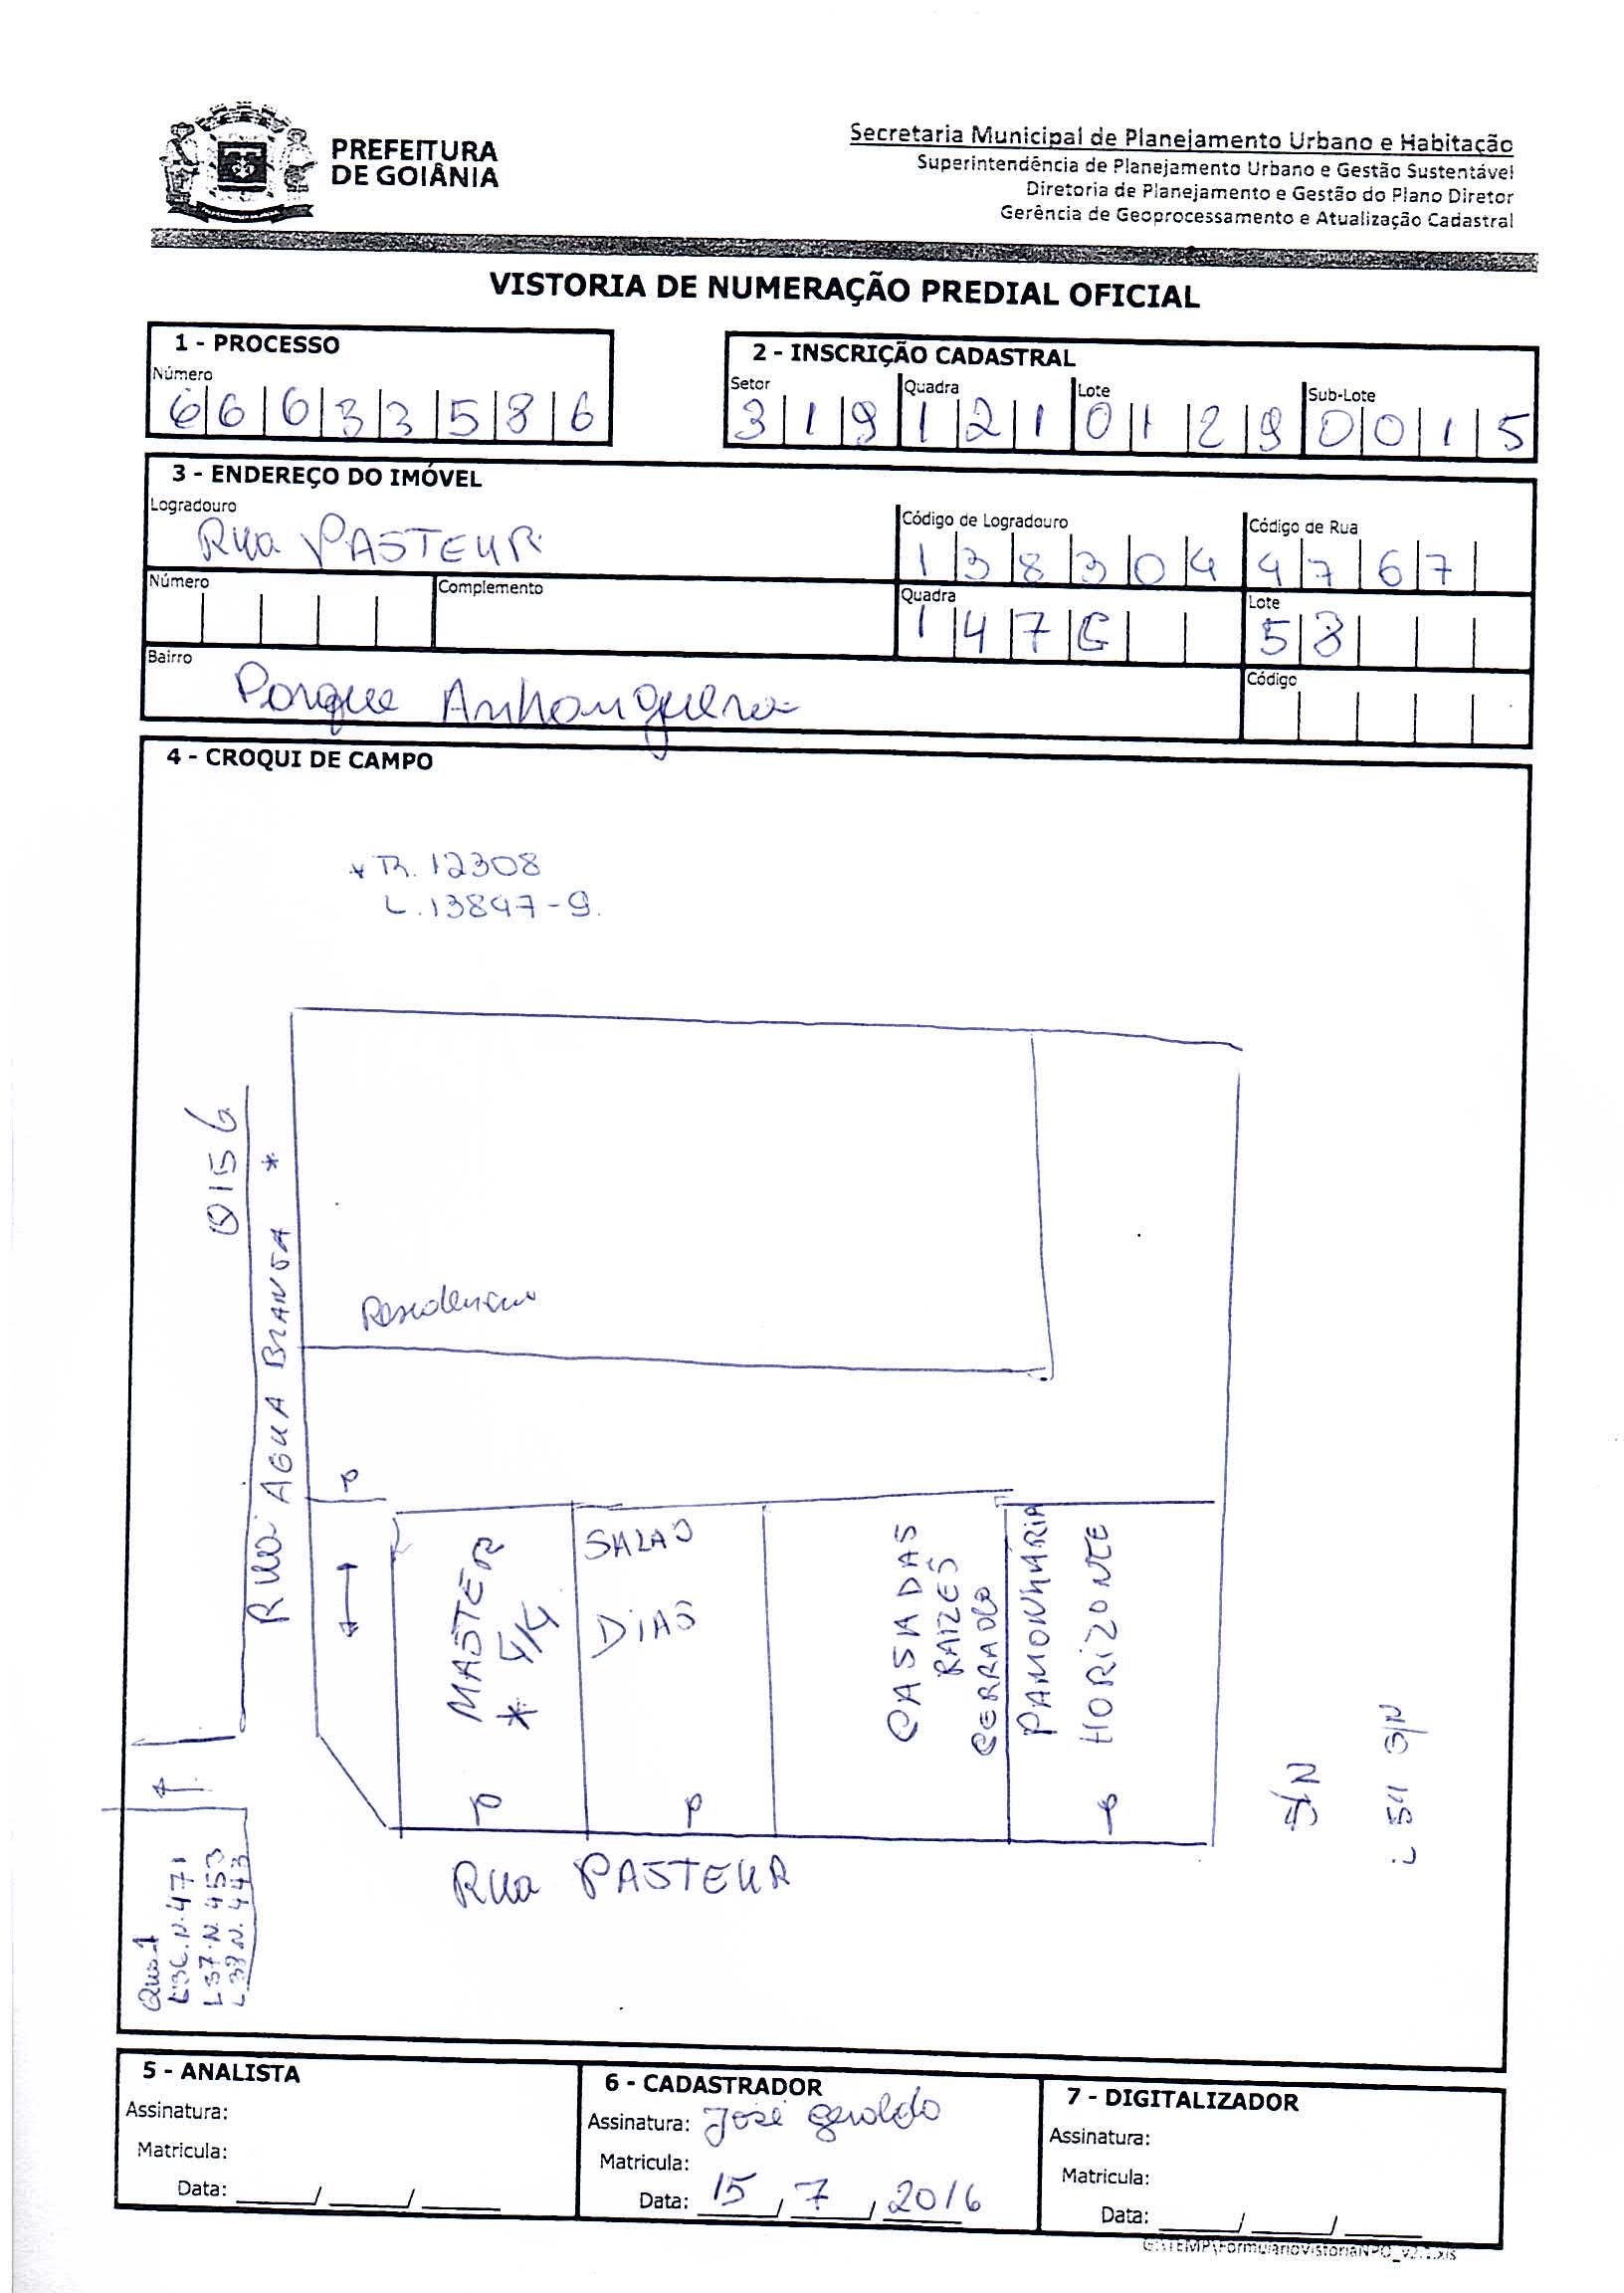 PREFEITURA
DE GOIÂNIA
Secretaria Municipal de Planejamento Urbano e Habitação
Superintendência de Planejamento Urbano e Gestão Sustentável
Diretoria de Planejamento e Gestão do Plano Diretor
Gerência de Geoprocessamento e Atualização Cadastral
VISTORIA DE NUMERAÇÃO PREDIAL OFICIAL
1 - PROCESSO
Número
66633586
2 - INSCRIÇÃO CADASTRAL
Setor Quadra Lote Sub-Lote
319 121 0129 0015
3 - ENDEREÇO DO IMÓVEL
Logradouro Código de Logradouro Código de Rua
Rua PASTEUR 138304 4767
Número Complemento Quadra Lote
147G 53
Bairro Código
Parque Anhanguera
4 - CROQUI DE CAMPO
* R. 12308
L. 13847-9.
Q 156
RUA AGUA BRANCA *
Residencia
P
MASTER
* 4/4
P
SALAO
DIAS
P
CASA DAS
RAIZES
CERRADO
PAMONHARIA
HORIZONTE
P
S/N
L 54 S/N
Rua PASTEUR
Qua.1
L36.N.471
L37.N.453
L.38N.443
5 - ANALISTA
Assinatura:
Matricula:
Data: ____/____/____
6 - CADASTRADOR
Assinatura: José Geraldo
Matricula:
Data: 15/7/2016
7 - DIGITALIZADOR
Assinatura:
Matricula:
Data: ____/____/____
G:\TEMP\FormularioVistoriaNPO_v2.1.xls